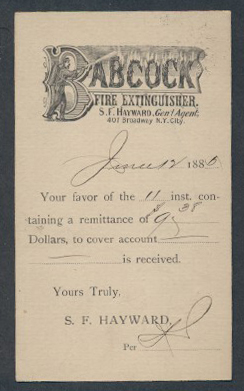 BABCOCK
FIRE EXTINGUISHER.
S. F. HAYWARD, Gen'l Agent,
407 Broadway N.Y. City.
June 12 1880
Your favor of the 11 inst. con-
taining a remittance of $9.38
Dollars, to cover account
is received.
Yours Truly,
S. F. HAYWARD,
Per